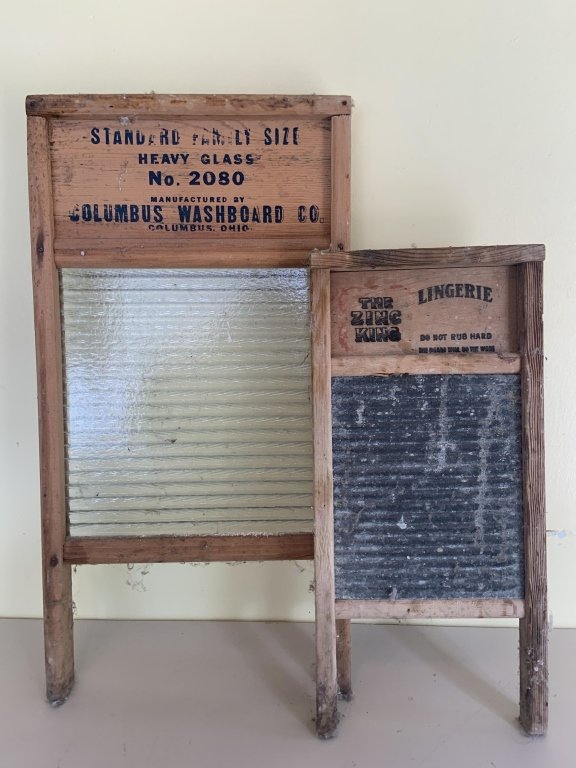 STANDARD FAMILY SIZE
HEAVY GLASS
No. 2080
MANUFACTURED BY
COLUMBUS WASHBOARD CO.
COLUMBUS, OHIO.
THE
ZINC
KING
LINGERIE
DO NOT RUB HARD
THE BOARD WILL DO THE WORK